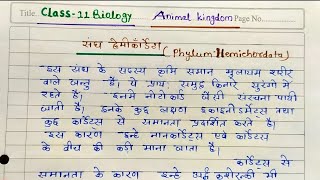 Title. Class-11 Biology Animal kingdom Page No.
संघ हेमीकॉर्डेटा (Phylum: Hemichordata)
-इस संघ के सदस्य कृमि समान मुलायम शरीर
वाले जन्तु है। ये प्रायः समुद्र किनारे सुरंगो में
रहते है। इनमे नोटोकॉर्ड जैसी संरचना पायी
जाती है। इनके कुछ लक्षण इकाइनोडर्मेटा तथा
कुछ कॉर्डेटा से समानता प्रदर्शित करते है।
-इस कारण इन्हे नानकॉर्डेटा एवं कॉर्डेटा
के बीच की कडी माना जाता है।
कॉर्डेटा से
समानता के कारण इन्हे अर्द्ध कशेरुकी भी